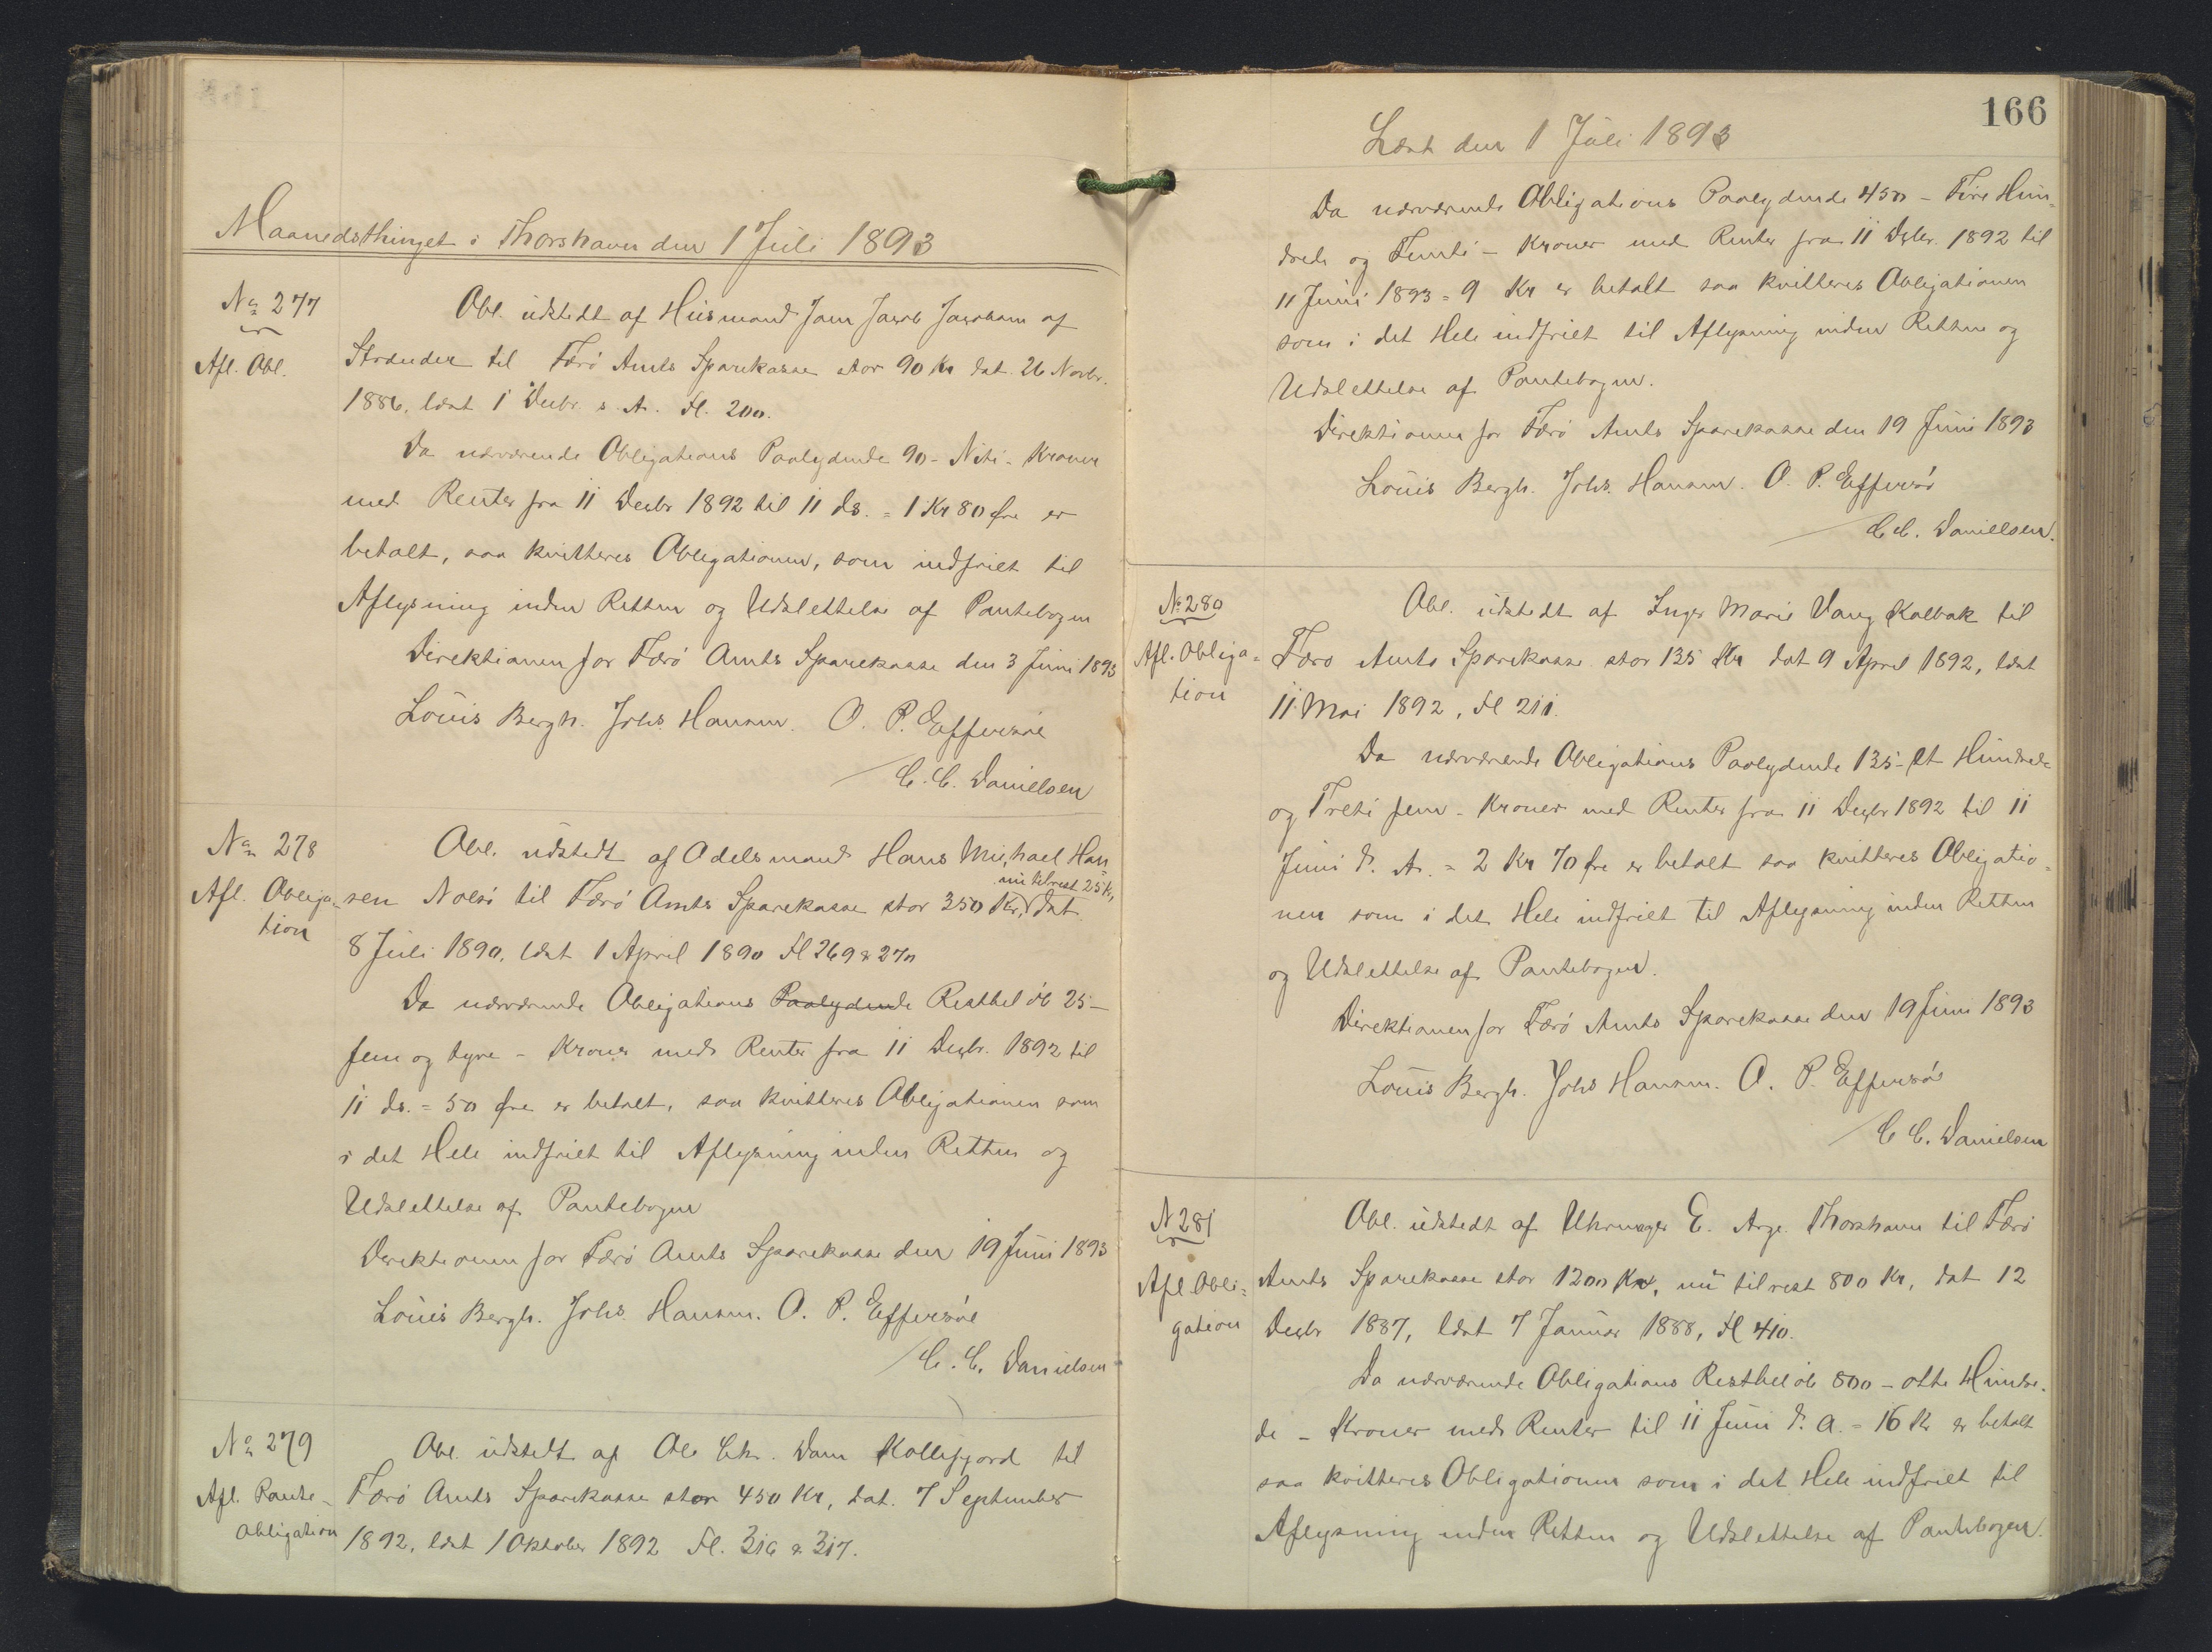 Maanedsthinget i Thorshavn den 1 Juli 1893
No 277
Afl. Obl.
Obl. udstedt af Husmand Joen Jacob Jacobsen af
Strænder til Færö Amts Sparekasse stor 90 Kr dat. 26 Novbr.
1886, læst 1 Decbr. s. A. Fl. 200.
Da nærværende Obligations Paalydende 90 - Niti - Kroner
med Renter fra 11 Decbr 1892 til 11 ds. = 1 Kr 80 Øre er
betalt, saa kvitteres Obligationen, som indfriet til
Aflysning inden Retten og Udslettelse af Pantebogen
Direktionen for Færö Amts Sparekasse den 3 Juni 1893
Louis Bergh. Johs. Hansen. O. P. Effersöe
/ C. C. Danielsen
No 278
Afl. Obliga-
tion
Obl. udstedt af Odelsmand Hans Michael Han
nu tilrest 25 Kr,
sen Nolsö til Færö Amts Sparekasse stor 350 Kr, dat.
8 Juli 1890, læst 1 April 1890 Fl 269 & 270
Da nærværende Obligations Paalydende Restbelöb 25 -
fem og tyve - Kroner med Renter fra 11 Decbr. 1892 til
11 ds. = 50 Øre er betalt, saa kvitteres Obligationen som
i det Hele indfriet til Aflysning inden Retten og
Udslettelse af Pantebogen
Direktionen for Færö Amts Sparekasse den 19 Juni 1893
Louis Bergh. Johs. Hansen. O. P. Effersöe
/ C. C. Danielsen
No 279
Afl. Pante-
obligation
Obl. udstedt af Ole Chr. Dam Kollefjord til
Færö Amts Sparekasse stor 450 Kr, dat. 7 September
1892, læst 1 Oktober 1892 Fl. 316 & 317.
166
Læst den 1 Juli 1893
Da nærværende Obligations Paalydende 450 - Fire Hun-
drede og Femti - Kroner med Renter fra 11 Decbr. 1892 til
11 Juni 1893 = 9 Kr er betalt saa kvitteres Obligationen
som i det Hele indfriet til Aflysning inden Retten og
Udslettelse af Pantebogen.
Direktionen for Færö Amts Sparekasse den 19 Juni 1893
Louis Bergh. Johs. Hansen. O. P. Effersöe
/ C. C. Danielsen.
No 280
Afl. Obliga-
tion
Obl. udstedt af Inger Marie Vang Kalbak til
Færö Amts Sparekasse stor 135 Kr dat 9 April 1892, læst
11 Mai 1892, Fl 211.
Da nærværende Obligations Paalydende 135 - Et Hundrede
og Treti fem - Kroner med Renter fra 11 Decbr 1892 til 11
Juni d. A. = 2 Kr 70 Øre er betalt saa kvitteres Obligatio-
nen som i det Hele indfriet til Aflysning inden Retten
og Udslettelse af Pantebogen.
Direktionen for Færö Amts Sparekasse den 19 Juni 1893
Louis Bergh. Johs Hansen. O. P. Effersöe
/ C C. Danielsen
N 281
Afl. Obli-
gation
Obl. udstedt af Uhrmager E. Arge Thorshavn til Færö
Amts Sparekasse stor 1200 Kr, nu tilrest 800 Kr, dat 12
Decbr 1887, læst 7 Januar 1888, Fl 410.
Da nærværende Obligations Restbelöb 800 - otte Hundre-
de - Kroner med Renter til 11 Juni d. A. = 16 Kr er betalt
saa kvitteres Obligationen som i det Hele indfriet til
Aflysning inden Retten og Udslettelse af Pantebogen.